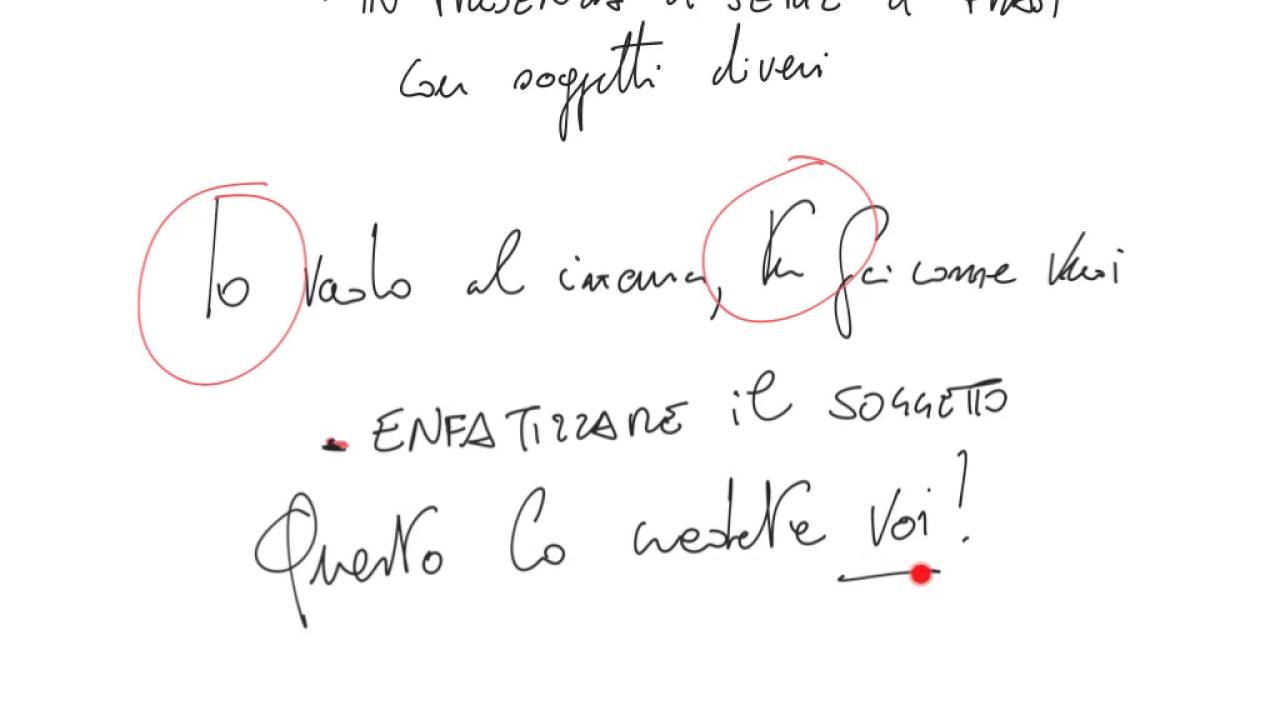 IN PRESENZA di SERIE di FRASI
con soggetti diversi
Io vado al cinema, tu fai come vuoi
- ENFATIZZARE il SOGGETTO
Questo lo credete voi!